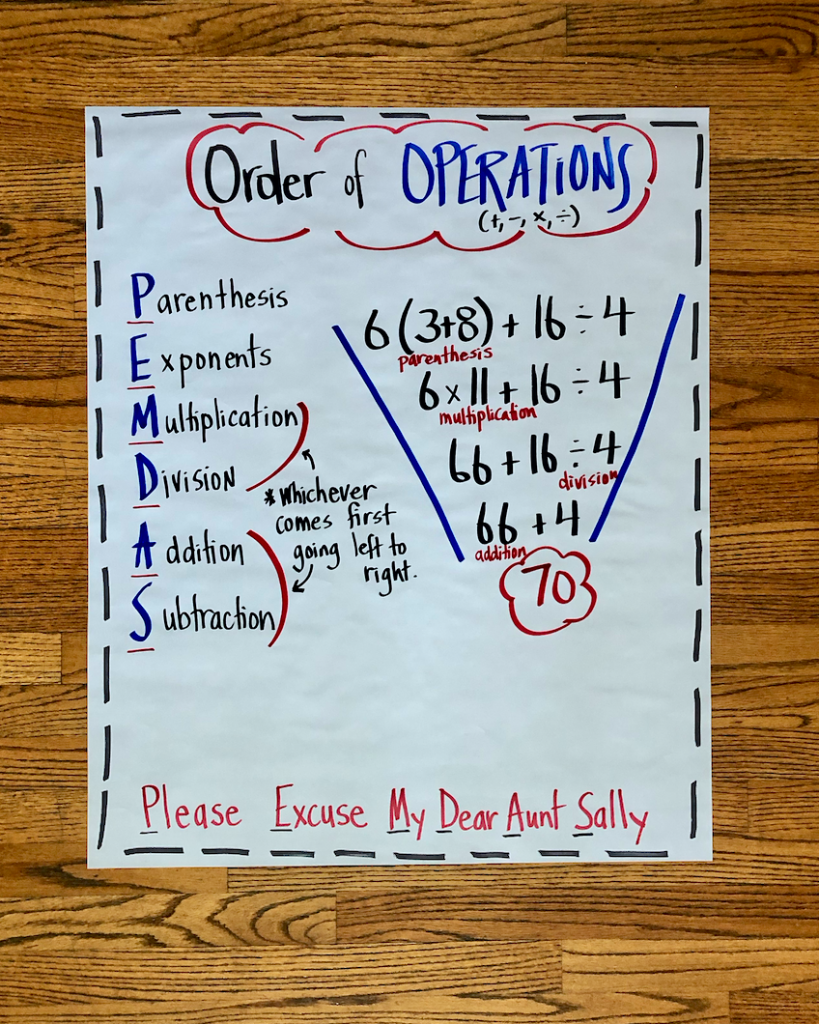 Order of OPERATIONS
(+, -, ×, ÷)
Parenthesis
Exponents
Multiplication
Division
Addition
Subtraction
* Whichever
comes first
going left to
right.
6 (3+8) + 16 ÷ 4
parenthesis
6 × 11 + 16 ÷ 4
multiplication
66 + 16 ÷ 4
division
66 + 4
addition
70
Please Excuse My Dear Aunt Sally